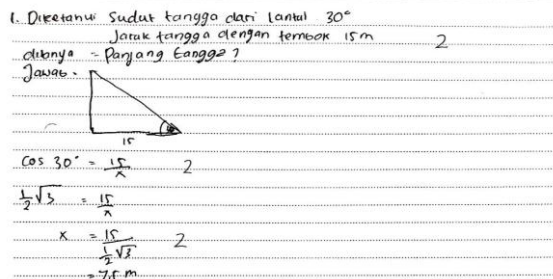 1. Diketahui Sudut tangga dari lantai 30°
Jarak tangga dengan tembok 15 m 2
ditanya = Panjang tangga?
Jawab.
15
cos 30° = 15/x 2
1/2 √3 = 15/x
x = 15/(1/2 √3) 2
= 7,5 m